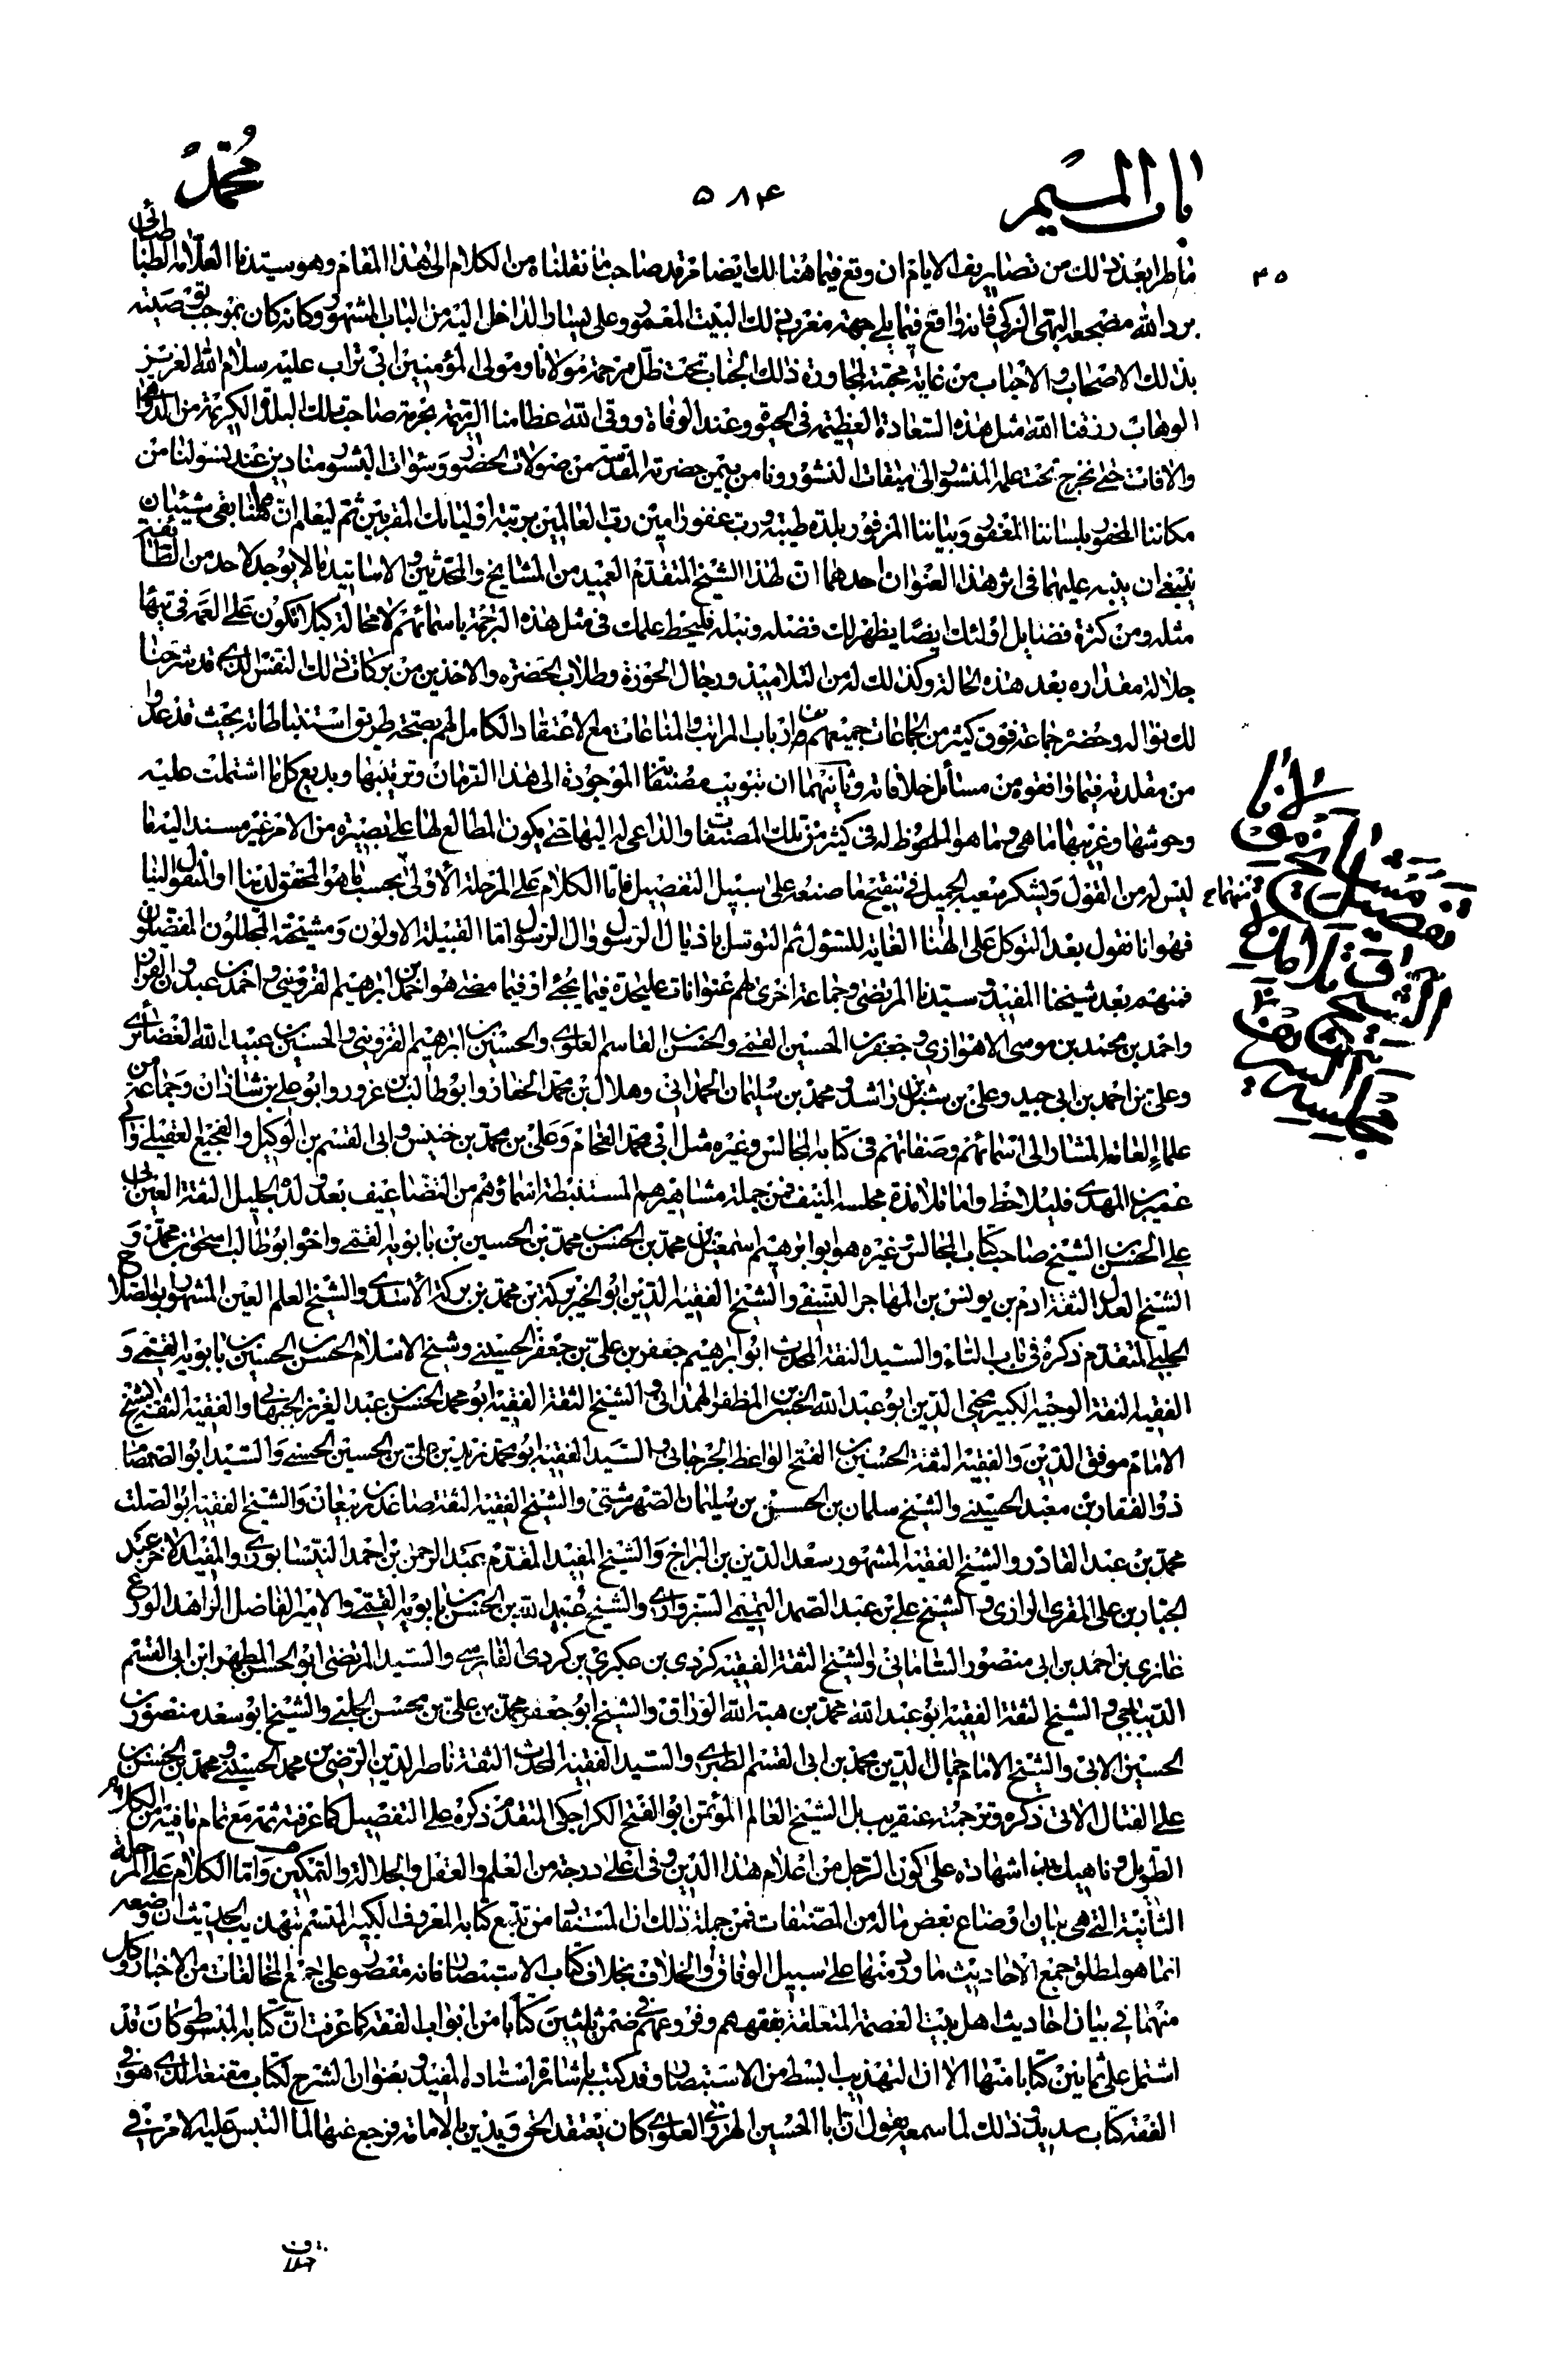 باب الميم
۵۸۴
محمد
ماطرا بعد ذلك من تصاريف الايام ان وقع فيما هنا لك ايضا مرقد صاحب ما نقلناه من الكلام الى هذا المقام وهو سيدنا العلامة الطباطبائى
برد الله مضجعه البهى الزكى فانه واقع فيما يلى جهة مغرب ذلك البيت المعمور وعلى يسار الداخل اليه من الباب المشهور وكانه كان بموجب توصيته
بذلك الاصحاب والاحباب من غاية محبته لمجاورة ذلك الجناب تحت ظل مرحمة مولانا ومولى المؤمنين ابى تراب عليه سلام الله العزيز
الوهاب رزقنا الله مثل هذه السعادة العظيمة فى الحيوة وعند الوفاة ووقى الله عظامنا الرميمة بحرمة صاحب تلك البلدة الكريمة من
والافات حتى نخرج تحت علمه المنشور الى ميقات النشور ونامن بيمن حضرته المقدسة من صولات الحضور وسئوات البشور منادين عند نسولنا من
مكاننا المحفور بلساننا المغفور وبياننا المزفور بلدة طيبة ورب غفور امين رب العالمين برتبة اوليائك المقربين ثم ليعلم ان ههنا بقى شيئان
ينبغى ان ينبه عليهما فى اثر هذا العنوان احدهما ان لهذا الشيخ المتقدم العميد من المشايخ والمحدثين والاساتيد ما لا يوجد لاحد من الطائفة
مثله ومن كثرة فضايل اولئك ايضا يظهر لك فضله ونبله فليحط علمك فى مثل هذه الترجمة باسمائهم لا محالة كيلا تكون على العمه فى تهيئا
جلالة مقداره بعد هذه الحالة وكذلك له من التلاميذ ورجال الحوزة وطلاب الحضرة والاخذين من بركات ذلك النفس الذى قد شرحنا
لك نواله وحضره جماعة فوق كثير من الجماعات جميعهم من ارباب المراتب والمناعات مع الاعتقاد الكامل لهم بصحة طريق استنباطاته بحيث قد عدوا
من مقلدته فيما وافقوه من مسائل خلافاته وثانيهما ان تبويب مصنفاته الموجودة الى هذا الزمان وترتيبها وبديع كل ما اشتملت عليه
وحوشها وغريبها ما هى وما هو الملحوظ له فى كثير من تلك المصنفات والداعى له اليها حتى يكون المطالع لها على بصيرة من الامر غير مسند اليه ما
ليس له من القول وليشكر سعيه الجميل فى تنقيح ما صنعه على سبيل التفصيل فاما الكلام على المرحلة الأولى بحسب ما هو المحقق لدينا او المنقول الينا
فهو انا نقول بعد التوكل على الهنا الغاية للسئول ثم التوسل باذيال الرسول وال الرسول اما القبيلة الاولون ومشيخته المجللون المفضلون
فمنهم بعد شيخنا المفيد وسيدنا المرتضى وجماعة اخرى لهم عنوانات عليحدة فيما يجئ او فيما مضى هو احمد بن ابرهيم القزوينى واحمد بن عبدون
واحمد بن محمد بن موسى الاهوازى وجعفر بن الحسين القمى والحسن بن القاسم العلوى والحسين بن ابرهيم القزوينى والحسين بن عبيد الله الغضائرى
وعلى بن احمد بن ابى جيد وعلى بن شبل بن راشد ومحمد بن سليمان الحمدانى وهلال بن محمد الحفار وابو طالب بن غرور وابو على بن شاذان وجماعة من
علماء العامة المشار الى اسمائهم وصفاتهم فى كتابه المجالس وغيره مثل ابى محمد الفحام وعلى بن محمد بن خنيس وابى القسم بن الوكيل والفجيع العقيلى وابى
عمير بن المهدى فليلاحظ واما تلامذة مجلسه المنيف فمن جملة مشاهيرهم المستنبطة اسماؤهم من التضاعيف بعد ولده الجليل الثقة العين ابى
على الحسن بن الشيخ صاحب كتاب المجالس وغيره هو ابو ابرهيم اسمعيل بن محمد بن الحسن بن محمد بن الحسين بن بابويه القمى واخوه ابو طالب اسحق بن محمد و
الشيخ العدل الثقة ادم بن يونس بن المهاجر النسفى والشيخ الفقيه الدين ابو الخير بركة بن محمد بن بركة الأسدى والشيخ العلم العين المشهور ابو الصلاح
الحلبى المتقدم ذكره فى باب التاء والسيد الثقة المحدث ابو ابرهيم جعفر بن على بن جعفر الحسينى وشيخ الاسلام الحسن بن الحسين بن بابويه القمى و
الفقيه الثقة الوجيه الكبير محيى الدين ابو عبد الله الحسن بن المظفر الهمدانى والشيخ الثقة الفقيه ابو محمد الحسن بن عبد العزيز الجبهانى والفقيه الثقة الشيخ
الامام موفق الدين والفقيه الثقة الحسين بن الفتح الواعظ الجرجانى والسيد الفقيه ابو محمد زيد بن على بن الحسين الحسنى والسيد ابو الصمصام
ذو الفقار بن معبد الحسينى والشيخ سلمان بن الحسن بن سليمان الصهرشتى والشيخ الفقيه الثقة صاعد بن ربيعة بن والشيخ الفقيه ابو الصلت
محمد بن عبد القادر والشيخ الفقيه المشهور سعد الدين بن البراج والشيخ المفيد المقدم عبد الرحمن بن احمد النيشابورى والمفيد الاخر عبد
الجبار بن على المقرى الرازى والشيخ على بن عبد الصمد التميمى السبزوارى والشيخ عبيد الله بن الحسن بن بابويه القمى والامير الفاضل الزاهد الورع
غازى بن احمد بن ابى منصور السامانى والشيخ الثقة الفقيه كردى بن عكبرى بن كردى الفارسى والسيد المرتضى ابو الحسن المطهر ابن ابى القسم
الديباجى والشيخ الثقة الفقيه ابو عبد الله محمد بن هبة الله الوراق والشيخ ابو جعفر محمد بن على بن محسن الحلبى والشيخ ابو سعد منصور بن
الحسين الابى والشيخ الامام جمال الدين محمد بن ابى القسم الطبرى والسيد الفقيه المحدث الثقة ناصر الدين الرضى بن محمد الحسينى ومحمد بن الحسن بن
على الفتال الاتى ذكره وترجمته عنقريب بل الشيخ العالم المؤتمن ابو الفتح الكراجكى المتقدم ذكره على التفصيل كما عرفته ثمة مع تمام ما فيه من الكلام
الطويل وناهيك به اشهادة على كون الرجل من اعلام هذا الدين وفى اعلى درجة من العلم والعقل والجلالة والتمكين واما الكلام على المرحلة
الثانية التى هى بيان اوضاع بعض ماله من المصنفات فمن جملة ذلك ان المستفاد من تتبع كتابه المعروف الكبير المتسم بتهذيب الحديث ان وضعه
انما هو لمطلق جمع الاحاديث ما ورد منها على سبيل الوفاق والخلاف بخلاف كتاب الاستبصار فانه مقصور على جمع المخالفات من الاخبار وكل
منهما فى بيان احاديث اهل بيت العصمة المتعلقة بفقههم وفروعهم فى ضمن ثلثين كتابا من ابواب الفقه كما عرفت ان كتابه المبسوط كان قد
اشتمل على ثمانين كتابا منها الا ان التهذيب ابسط من الاستبصار وقد كتب باشارة استاده المفيد وبعنوان الشرح لكتاب مقنعته الذى هو فى
الفقه كتاب سديد وذلك لما سمعه يقول ان ابا الحسين الهرونى العلوى كان يعتقد الحق ويدين بالامامة فرجع عنها لما التبس عليه الامر فى